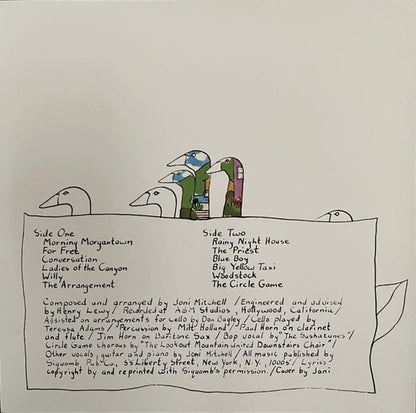 Side One
Morning Morgantown
For Free
Conversation
Ladies of the Canyon
Willy
The Arrangement
Side Two
Rainy Night House
The Priest
Blue Boy
Big Yellow Taxi
Woodstock
The Circle Game
Composed and arranged by Joni Mitchell / Engineered and advised
by Henry Lewy / Recorded at A&M Studios, Hollywood, California /
Assisted on arrangements for Cello by Don Bagley / Cello played by
Teresa Adams / Percussion by Milt Holland / Paul Horn on clarinet
and flute / Jim Horn on Baritone Sax / Bop vocal by "The Saskatunes" /
Circle Game Chorus by "The Lookout Mountain United Downstairs Choir" /
Other vocals, guitar and piano by Joni Mitchell / All music published by
Siquomb Pub Co, 55 Liberty Street, New York, N.Y., 10005 / Lyrics
copyright by and reprinted with Siquomb's permission. / Cover by Joni